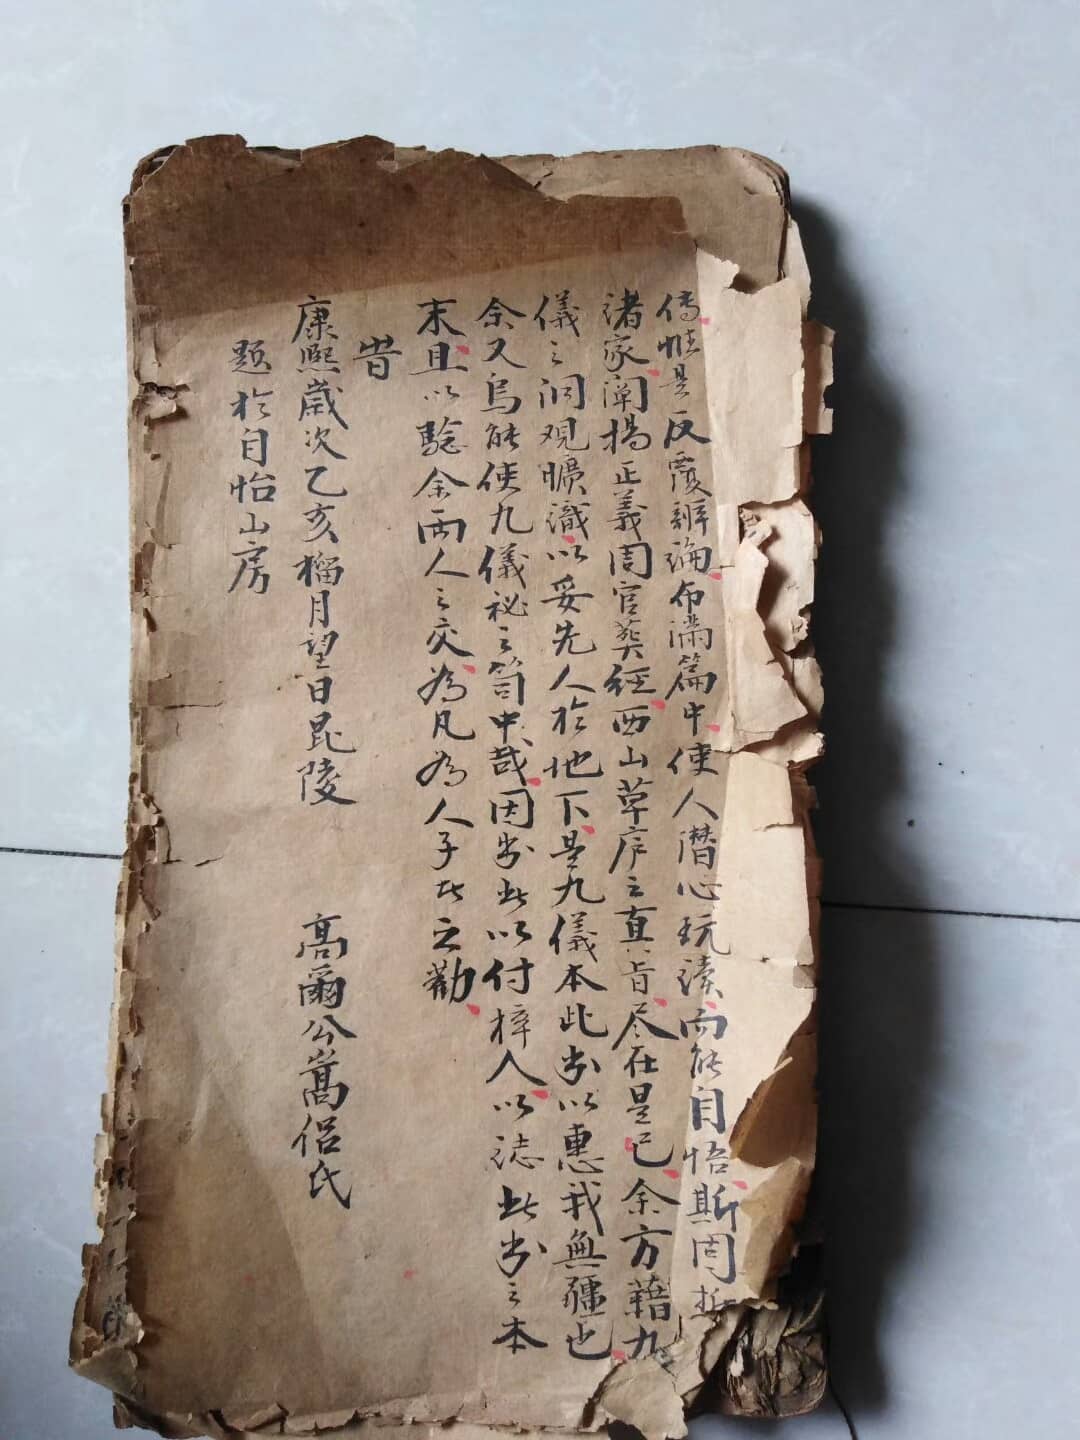 傳惟是反覆辨論布滿篇中使人潛心玩讀而能自悟斯固折
諸家闡揚正義周官葬經西山草序之真旨尽在是已余方藉九
儀之洞观曠識以妥先人於地下是九儀本此书以惠我無疆也
余又烏能使九儀祕之笥中哉因书此以付梓人以誌此书之本
末且以驗余兩人之交為凡為人子者之勸
昔
康熙歲次乙亥榴月望日昆陵 高爾公嵩侶氏
題於自怡山房